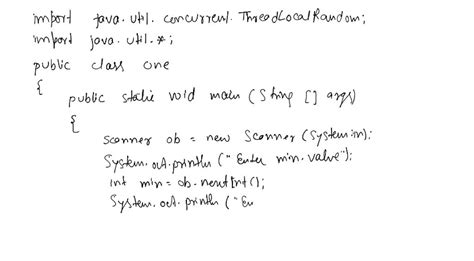 import java.util.concurrent.ThreadLocalRandom;
import java.util.*;
public class one
{
public static void main (String [] args)
{
Scanner ob = new Scanner (System.in);
System.out.println ("Enter min.value");
int min = ob.nextInt();
System.out.println ("En